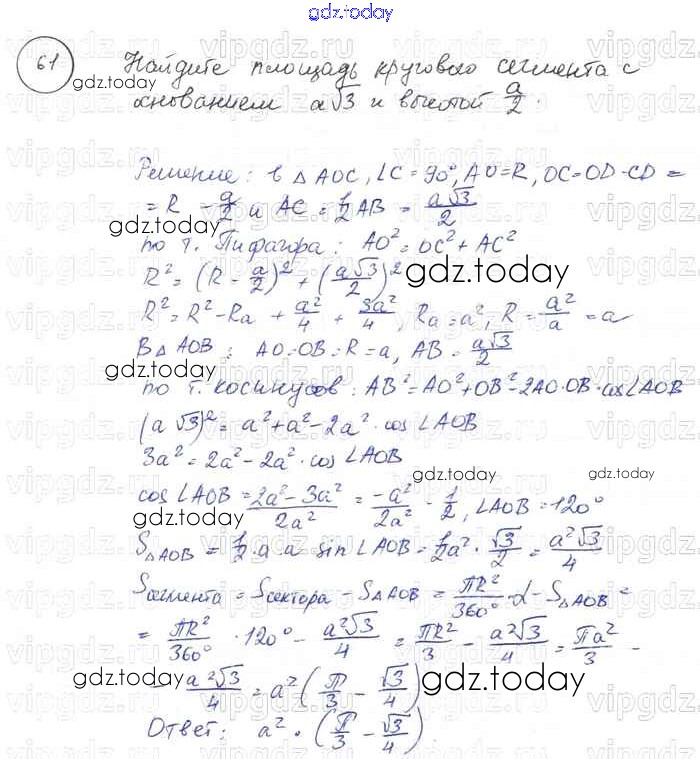 gdz.today
61 Найдите площадь кругового сегмента с
gdz.today
основанием a√3 и высотой a/2.
Решение: в △AOC, ∠C=90°, AO=R, OC=OD-CD =
= R - a/2 и AC = 1/2 AB = a√3/2
gdz.today
по т. Пифагора: AO²=OC²+AC²
R²=(R-a/2)²+(a√3/2)²
gdz.today
R²=R²-Ra + a²/4 + 3a²/4, Ra=a², R=a²/a=a
В △AOB: AO=OB=R=a, AB=a√3/2
gdz.today
по т. косинусов: AB²=AO²+OB²-2AO·OB·cos∠AOB
(a√3)²=a²+a²-2a²·cos∠AOB
3a²=2a²-2a²·cos∠AOB
gdz.today
gdz.today
cos∠AOB=2a²-3a²/2a²=-a²/2a² - 1/2, ∠AOB=120°
gdz.today
S△AOB = 1/2·a·a sin∠AOB=1/2a²·√3/2=a²√3/4
Sсегмента=Sсектора-S△AOB=ПR²/360°·α-S△AOB=
= ПR²/360°·120°-a²√3/4=ПR²/3-a²√3/4=Пa²/3-
gdz.today
- a²√3/4=a²(П/3-√3/4)
gdz.today
Ответ: a²·(П/3-√3/4)
gdz.today